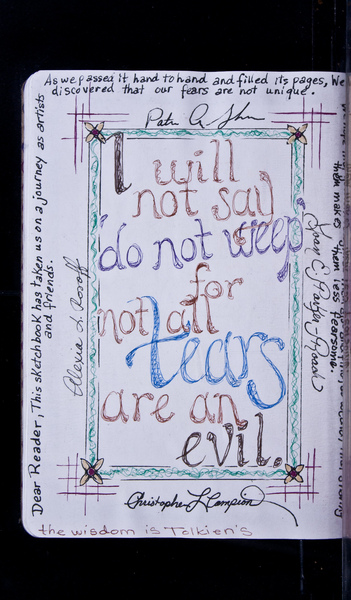 As we passed it hand to hand and filled its pages, We
discovered that our fears are not unique.
I will
not say
"do not weep"
for
not all
tears
are an
evil.
Dear Reader, This sketchbook has taken us on a journey as artists
and friends.
Alexia L. Rosoff
them makes them less fearsome.
Christopher L Campion
the wisdom is Tolkien's